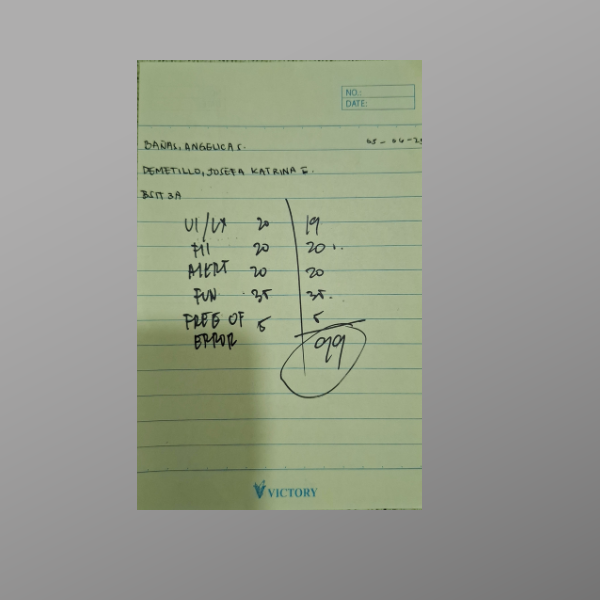 NO.:
DATE:
BAÑAS, ANGELICA S.
DEMETILLO, JOSEFA KATRINA E.
BSIT 3A
UI/UX 20 19
20 20
ALERT 20 20
FUN 35 35
FREE OF 5 5
ERROR
99
VICTORY